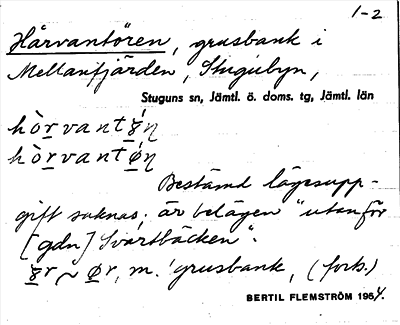 1-2
Hårvantören, grusbank i
Mellanfjärden, Stugubyn,
Stuguns sn, Jämtl. ö. doms. tg, Jämtl. län
Bestämd lägesupp-
gift saknas; är belägen "utanför
[gdn] Svartbäcken".
m. 'grusbank, (forts.)
BERTIL FLEMSTRÖM 1964.